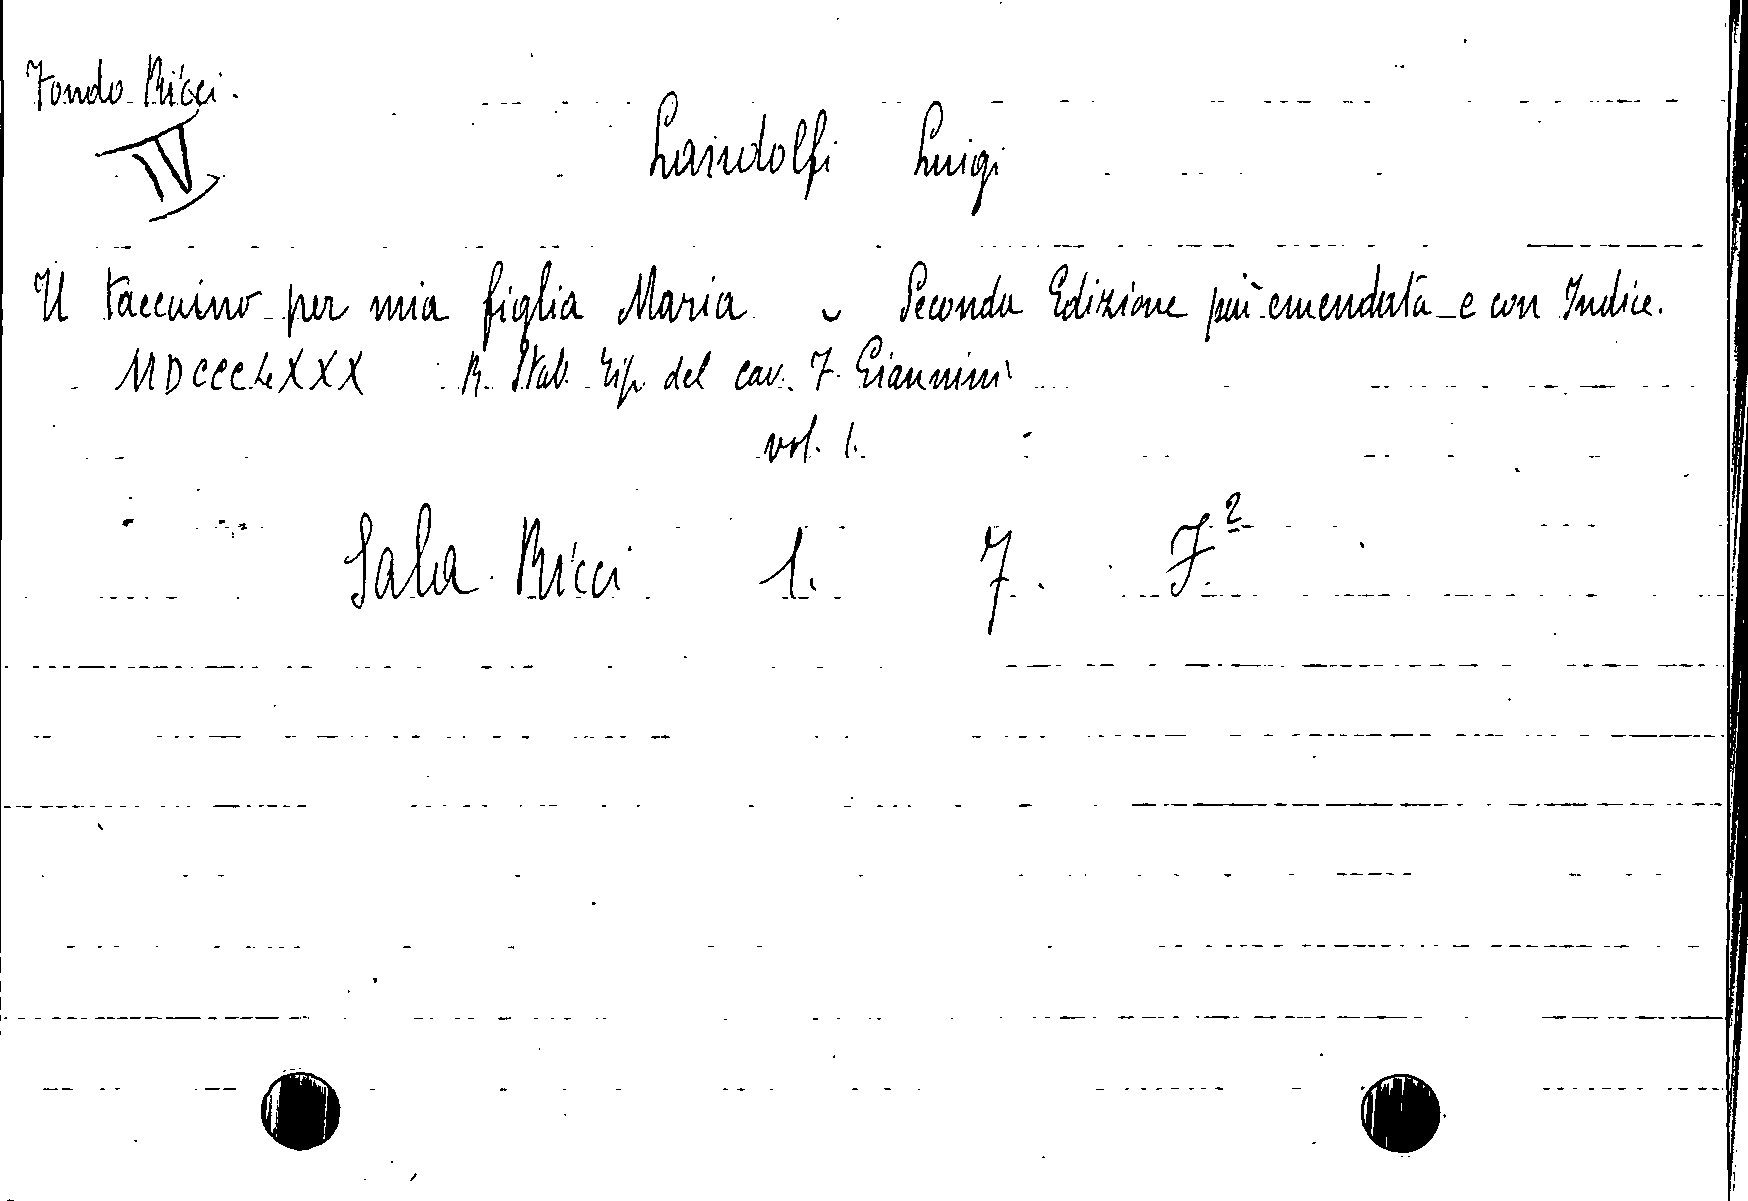 Fondo Ricci.
IV
Landolfi Luigi
Il taccuino per mia figlia Maria - Seconda Edizione più emendata e con Indice.
MDCCCLXXX R. Stab. Tip. del cav. F. Giannini
vol. 1.
Sala Ricci 1. 7. F.²